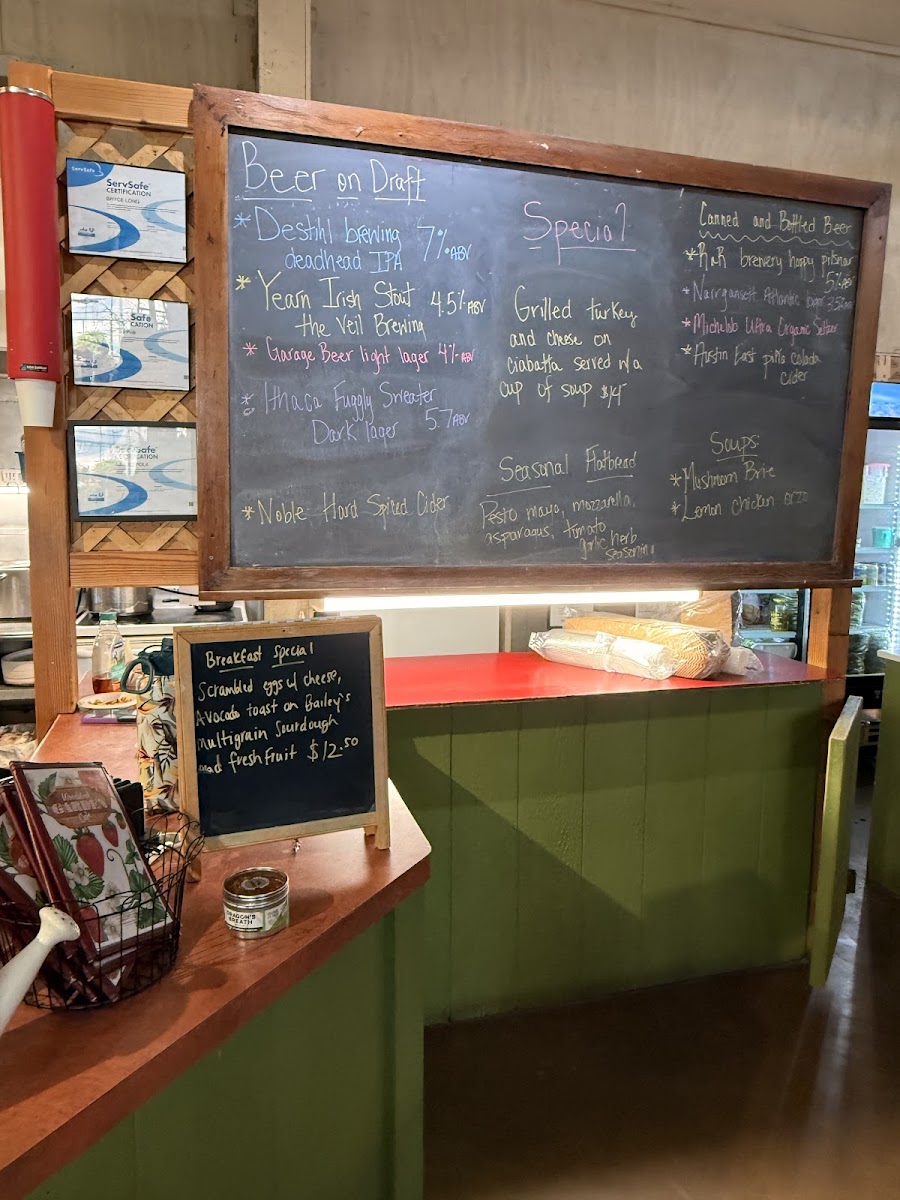 ServSafe
ServSafe
CERTIFICATION
Safe
CATION
ServSafe
CERTIFICATION
Beer on Draft
* Destihl brewing 7% ABV
deadhead IPA
* Yearn Irish Stout 4.5% ABV
the Veil Brewing
* Garage Beer light lager 4% ABV
* Ithaca Fuggly Sweater
Dark lager 5.7 ABV
* Noble Hard Spiced Cider
Special
Grilled turkey
and cheese on
ciabatta served w/a
cup of soup $14
Seasonal Flatbread
Pesto mayo, mozzarella,
asparagus, tomato
garlic herb
seasoning
Canned and Bottled Beer
* brewery hoppy pilsner
5% ABV
* Narragansett Atlantic lager
* Michelob Ultra Organic Seltzer
* Austin East piña colada
cider
Soups:
* Mushroom Brie
* Lemon chicken orzo
Breakfast Special
Scrambled eggs w/ cheese,
Avocado toast on Bailey's
multigrain Sourdough
and fresh fruit $12.50
GARDEN
DRAGON'S
BREATH